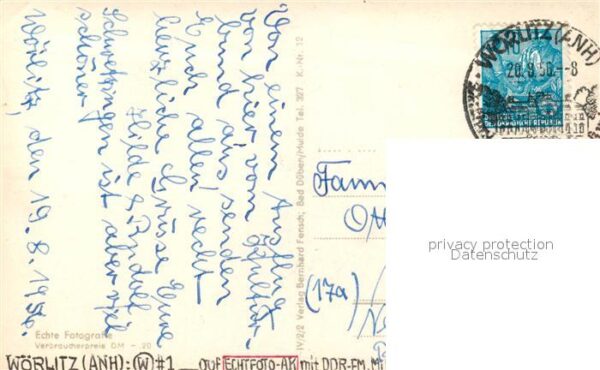 Von einem Ausflug
von hier vom Kultur-
bund aus, senden
Euch allen recht
herzliche Grüsse Eure
Hilde & Rudolf
Schwetzingen ist aber viel
schöner
Wörlitz, den 19.8.1956.
Echte Fotografie
Verbraucherpreis DM -.20
IV/2/2 Verlag Bernhard Fensch, Bad Düben/Mulde Tel. 327 K.-Nr. 12
WÖRLITZ (ANH)
20.8.56.-8
DEUTSCHE DEMOKRATISCHE REPUBLIK
Fam
Ott
(17a)
privacy protection
Datenschutz
WÖRLITZ (ANH): W #1 auf ECHTFOTO-AK mit DDR-FM, Mi